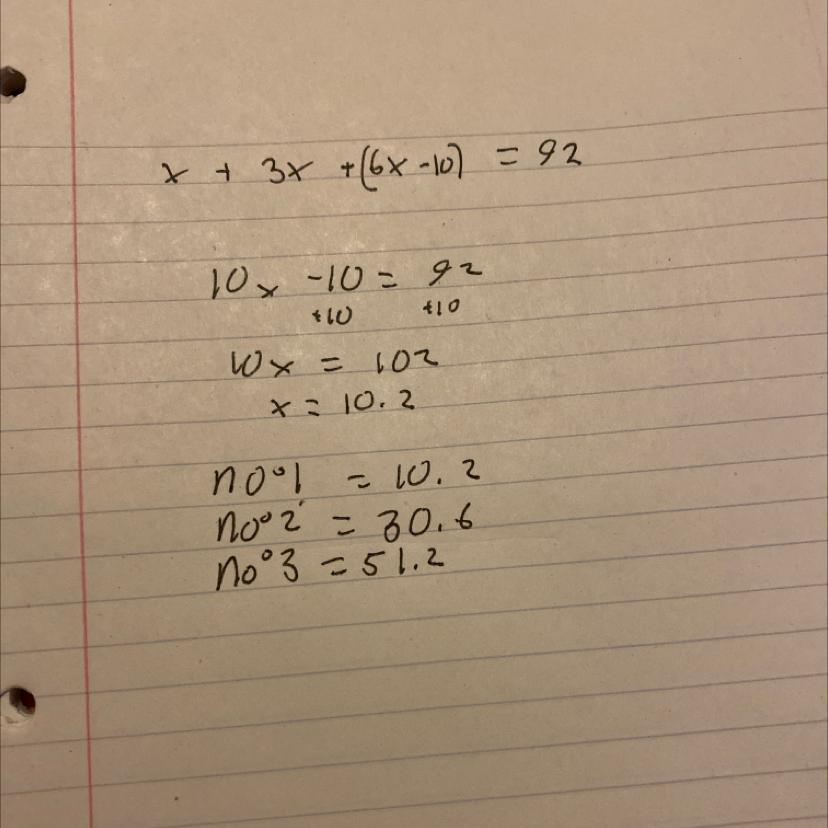 x + 3x + (6x - 10) = 92
10x - 10 = 92
+10 +10
10x = 102
x = 10.2
no°1 = 10.2
no°2 = 30.6
no°3 = 51.2